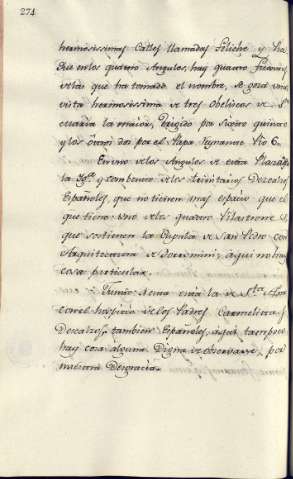 274
hermosissimas Calles llamadas Feliche y Pia
en los quatro Angulos, hay quatro fuentes
de las que ha tomado el nombre, se goza una
vista hermosissima de tres Obeliscos de Sta
maria la maior, Erigido por Sixto quinto
y los otros dos por el Papa Reynante Pio 6.
En uno de los Angulos de esta Plaza
la Yga. y combento de los trinitarios Descalzos
Españoles, que no tienen mas espacio que el
que tiene uno de los quatro Pilastrone s
que sostienen la Cupula de San Pedro con
Arquitectura de Borromini; aqui no hay
cosa particular.
Junto a esta la de Sta.
con el hospicio de los Padres Carmelitas
Descalzos tambien Españoles, aqui tampoco
hay cosa alguna Digna de observarse, por
nuestra Desgracia.